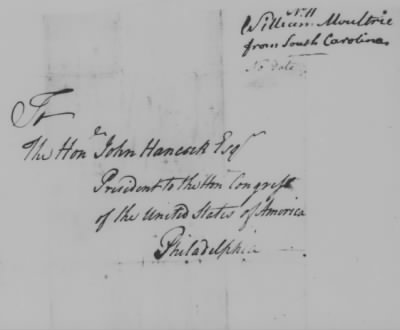 No. 11
William Moultrie
from South Carolina
No date
To
The Hon.e John Hancock Esq.r
President to the Hon.e Congress
of the United States of America
Philadelphia